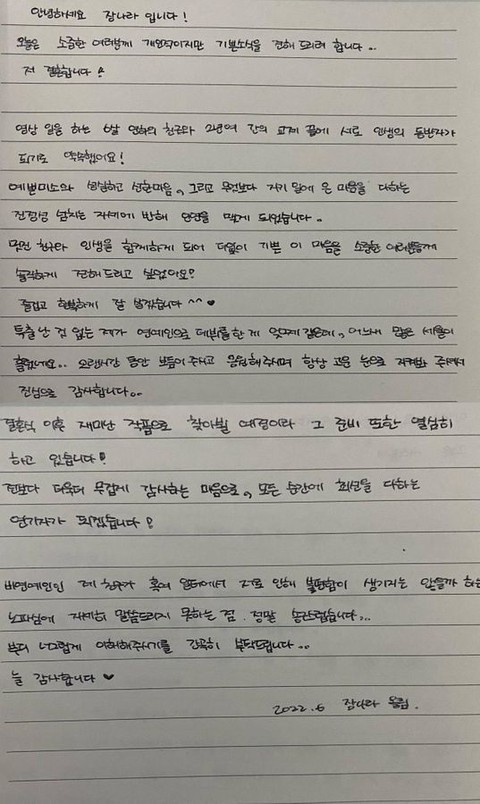 안녕하세요 장나라 입니다!
오늘은 소중한 여러분께 개인적이지만 기쁜소식을 전해 드리려 합니다..
저 결혼합니다!
영상 일을 하는 6살 연하의 친구와 2년여 간의 교제 끝에 서로 인생의 동반자가
되기로 약속했어요!
예쁜미소와 성실하고 선한마음, 그리고 무엇보다 자기 일에 온 마음을 다하는
진정성 넘치는 자세에 반해 인연을 맺게 되었습니다..
멋진 친구와 인생을 함께하게 되어 더없이 기쁜 이 마음을 소중한 여러분들께
솔직하게 전해드리고 싶었어요!
즐겁고 행복하게 잘 살겠습니다 ^^ ♥
특출난 것 없는 제가 연예인으로 데뷔를 한게 엊그제 같은데, 어느새 많은 세월이
흘렀네요.. 오랜시간 동안 보듬어주시고 응원해주시며 항상 고운 눈으로 지켜봐 주셔서
진심으로 감사합니다..
결혼식 이후 재미난 작품으로 찾아뵐 예정이라 그 준비 또한 열심히
하고 있습니다!
전보다 더욱더 무겁게 감사하는 마음으로, 모든 순간에 최선을 다하는
연기자가 되겠습니다!
비연예인인 제 친구가 혹여 일터에서 저로 인해 불편함이 생기지는 않을까 하는
노파심에 자세히 말씀드리지 못하는 점, 정말 송구스럽습니다...
부디 너그럽게 이해해주시기를 간곡히 부탁드립니다..
늘 감사합니다 ♥
2022.6 장나라 올림.